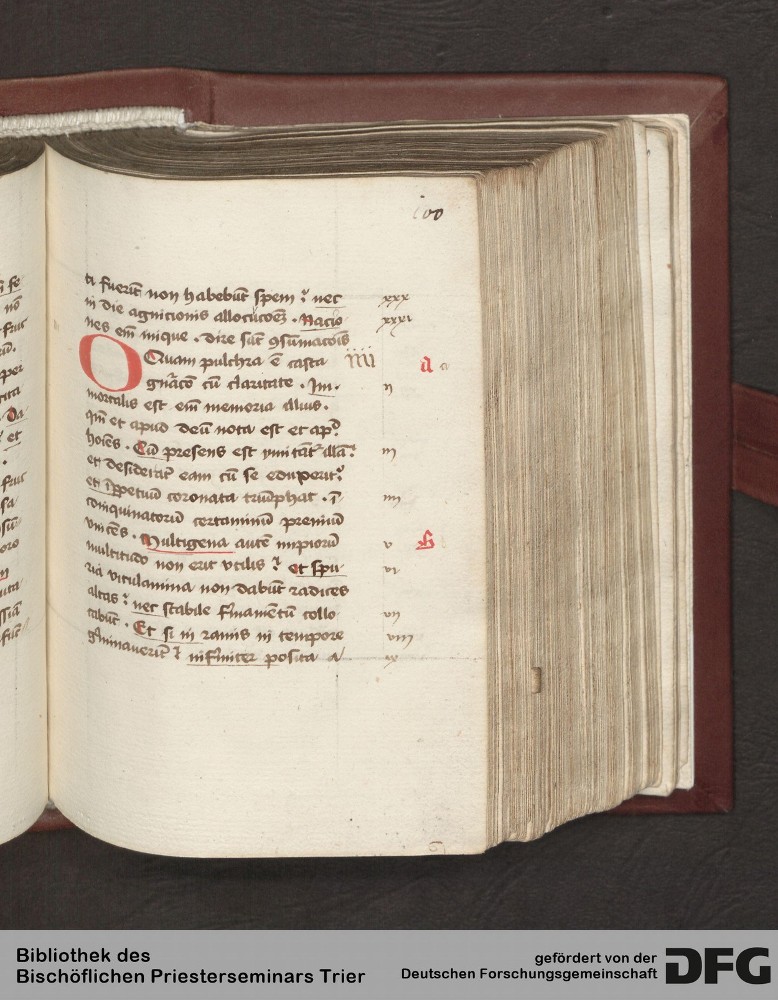 100
ti fuerīt non habebūt spem ⁏ nec xxx
in die agnicionis allocucōeȝ . Nacio xxxi
nes em̄ inique . dire sūt ꝯsumacōīs
O Quam pulchra ē casta iiii a a
gn̄acō cū claritate . Im- ii
mortalis est em̄ memoria illius .
qm̄ et apud deū nota est et apᵈ
hoīes . Cū presens est ymitāt᷑ illā ⁏ iii
et desiderāt eam cū se eduxerit ⁏
et īppetuū coronata triūphat . ī iiii
coinquinatorū certaminū premiū
vincēs . Multigena autē impiorū v b
multitudo non erit vtilis ⁏ et spu- vi
ria vitulamina non dabūt radices
altas ⁏ nec stabile firmamētū collo vii
cabūt . Et si in ramis in tempore viii
gˀminaverīt ⁏ infirmiter posita a ix
Bibliothek des
Bischöflichen Priesterseminars Trier
gefördert von der
Deutschen Forschungsgemeinschaft
DFG